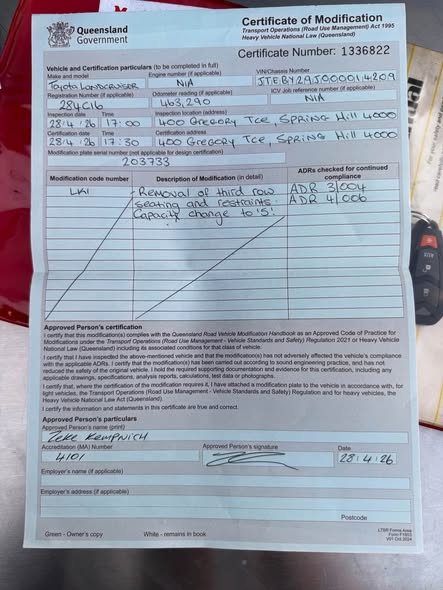 Queensland
Government
Certificate of Modification
Transport Operations (Road Use Management) Act 1995
Heavy Vehicle National Law (Queensland)
Certificate Number: 1336822
Vehicle and Certification particulars (to be completed in full)
Make and model
Engine number (if applicable)
VIN/Chassis Number
Toyota Landcruiser
N/A
Registration Number (if applicable)
Odometer reading (if applicable)
ICV Job reference number (if applicable)
284CI6
463,290
N/A
Inspection date
Time
Inspection location (address)
28/4/26
17:00
400 Gregory Tce, Spring Hill 4000
Certification date
Time
Certification address
28/4/26
17:30
400 Gregory Tce, Spring Hill 4000
Modification plate serial number (not applicable for design certification)
203733
Modification code number
Description of Modification (in detail)
ADRs checked for continued compliance
LK1
Removal of third row
ADR 3/004
seating and restraints.
ADR 4/006
Capacity change to '5'.
Approved Person's certification
I certify that this modification(s) complies with the Queensland Road Vehicle Modification Handbook as an Approved Code of Practice for
Modifications under the Transport Operations (Road Use Management - Vehicle Standards and Safety) Regulation 2021 or Heavy Vehicle
National Law (Queensland) including its associated conditions for that class of vehicle.
I certify that I have inspected the above-mentioned vehicle and that the modification(s) has not adversely affected the vehicle's compliance
with the applicable ADRs. I certify that the modification(s) has been carried out according to sound engineering practice, and has not
reduced the safety of the original vehicle. I hold the required supporting documentation and evidence for this certification, including any
applicable drawings, specifications, analysis reports, calculations, test data or photographs.
I certify that, where the certification of the modification requires it, I have attached a modification plate to the vehicle in accordance with, for
light vehicles, the Transport Operations (Road Use Management - Vehicle Standards and Safety) Regulation and for heavy vehicles, the
Heavy Vehicle National Law Act (Queensland).
I certify the information and statements in this certificate are true and correct.
Approved Person's particulars
Approved Person's name (print)
Zeke Krmpnich
Accreditation (MA) Number
Approved Person's signature
Date
4101
28/4/26
Employer's name (if applicable)
Employer's address (if applicable)
Postcode
Green - Owner's copy
White - remains in book
LTSR Forms Area
Form F1853
V01 Oct 2024